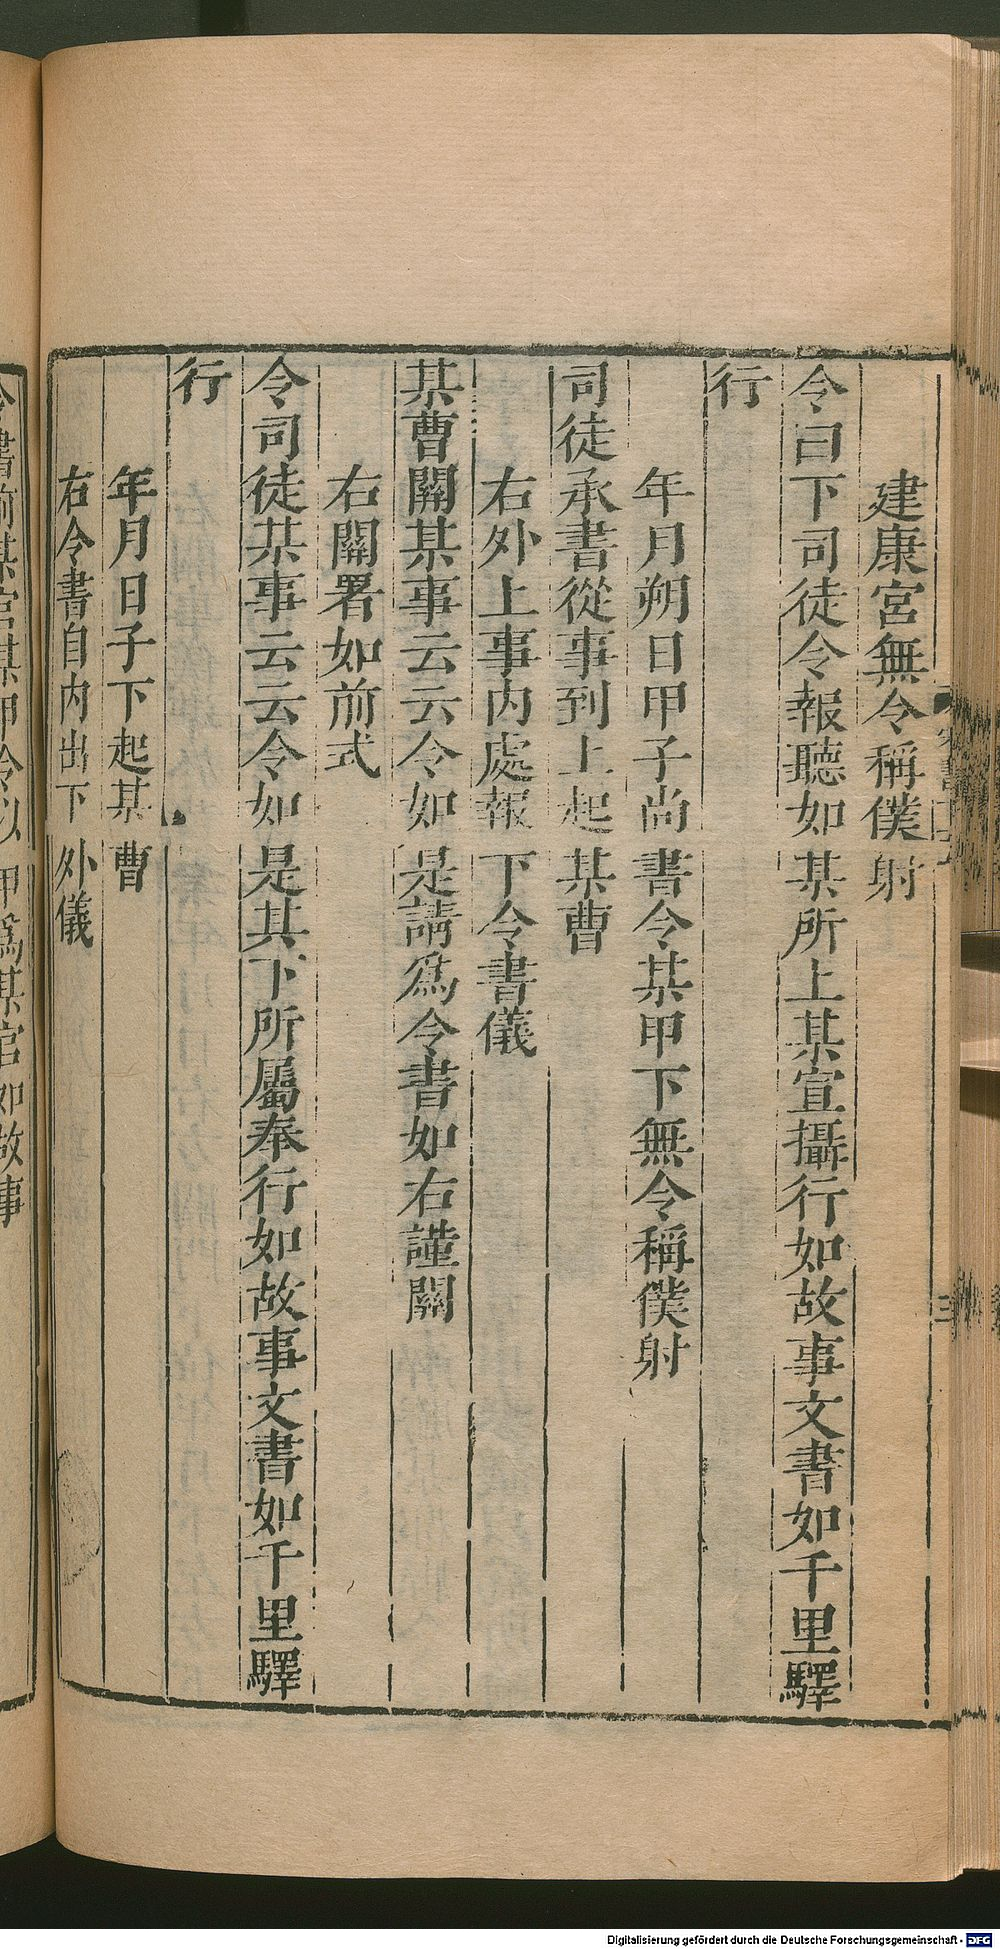 建康宮無令稱僕射
令曰下司徒令報聽如某所上某宣攝行如故事文書如千里驛
行
年月朔日甲子尚書令某甲下無令稱僕射
司徒承書從事到上起某曹
右外上事內處報下令書儀
某曹關某事云云令如是請爲令書如右謹關
右關署如前式
令司徒某事云云令如是其下所屬奉行如故事文書如千里驛
行
年月日子下起某曹
右令書自內出下外儀
令書前某官某甲令以甲爲某官如故事
Digitalisierung gefördert durch die Deutsche Forschungsgemeinschaft - DFG